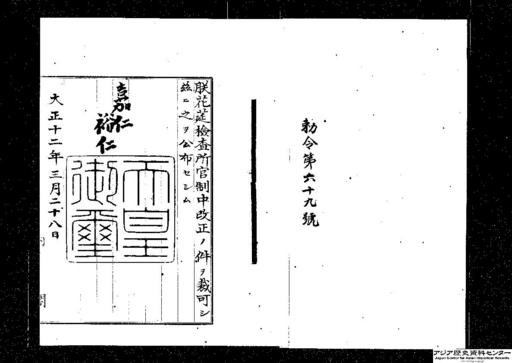 勅令第六十九號
朕花莚檢査所官制中改正ノ件ヲ裁可シ
玆ニ之ヲ公布セシム
嘉仁
裕仁
天皇
御璽
大正十二年三月二十八日
アジア歴史資料センター
Japan Center for Asian Historical Records